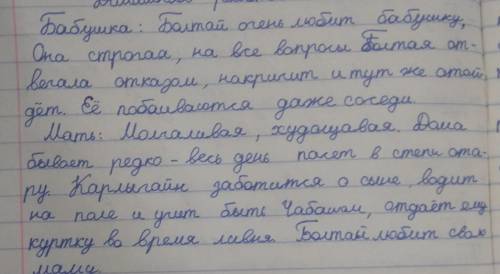 Бабушка: Болтай очень любит бабушку,
Она строгая, на все вопросы Болтая от-
вечала отказом, накричит и тут же отой
дёт. Её побаиваются даже соседи.
Мать: Молчаливая, худощавая. Дома
бывает редко - весь день пасет в степи ота-
ру. Карлыгайн заботится о сыне, водит
на поле и учит быть Чабаном, отдаёт ему
куртку во время ливня. Болтай любит свою
маму.